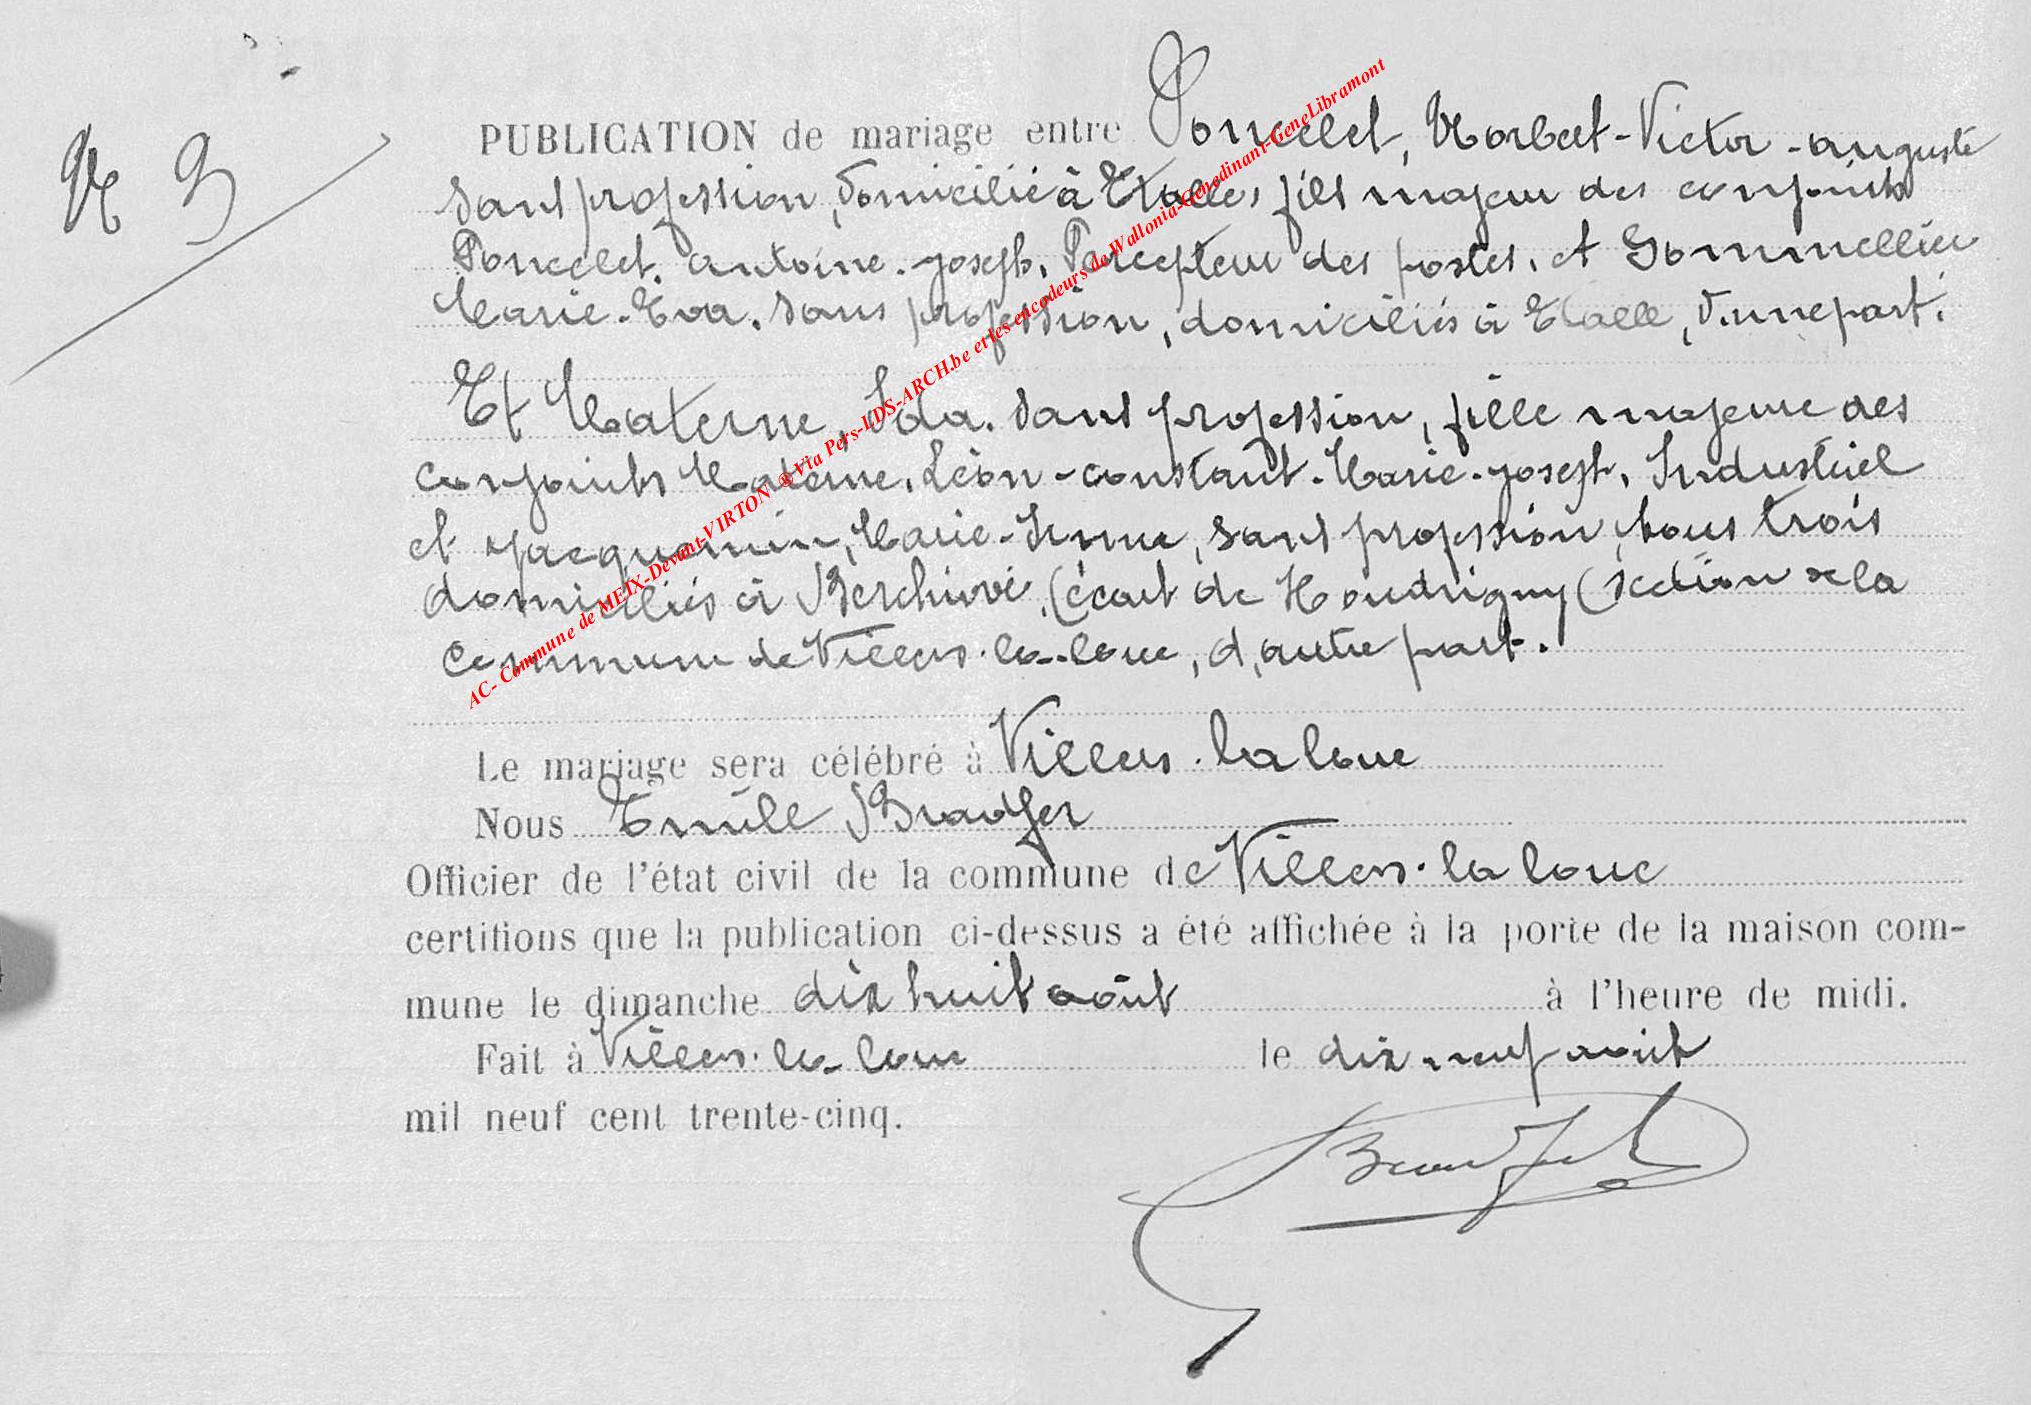 N 3
PUBLICATION de mariage entre Poncelet, Norbert-Victor-auguste
sans profession, domicilié à Etalle, fils majeur des conjoints
Poncelet. Antoine-joseph. Percepteur des postes. et Gommellier
Marie-Eva. sans profession, domiciliés à Etalle, d'une part.
Et Materne, Ida. sans profession, fille majeure des
conjoints Materne. Léon-constant-Marie-joseph, Industriel
et Jacquemin, Marie-Irma, sans profession, tous trois
domiciliés à Berchivé, (écart de Houdrigny (section de la
commune de Villers-la-loue, d'autre part.
Le mariage sera célébré à Villers-la loue
Nous Emile Bradfer
Officier de l'état civil de la commune de Villers-la loue
certifions que la publication ci-dessus a été affichée à la porte de la maison com-
mune le dimanche dix huit août à l'heure de midi.
Fait à Villers-la-loue le dix neuf août
mil neuf cent trente-cinq.
Bradfer
AC- Commune de MEIX-Devant-VIRTON @ Via Pers-LDS-ARCH.be et les encodeurs de Wallonia-Genedinant-GeneLibramont